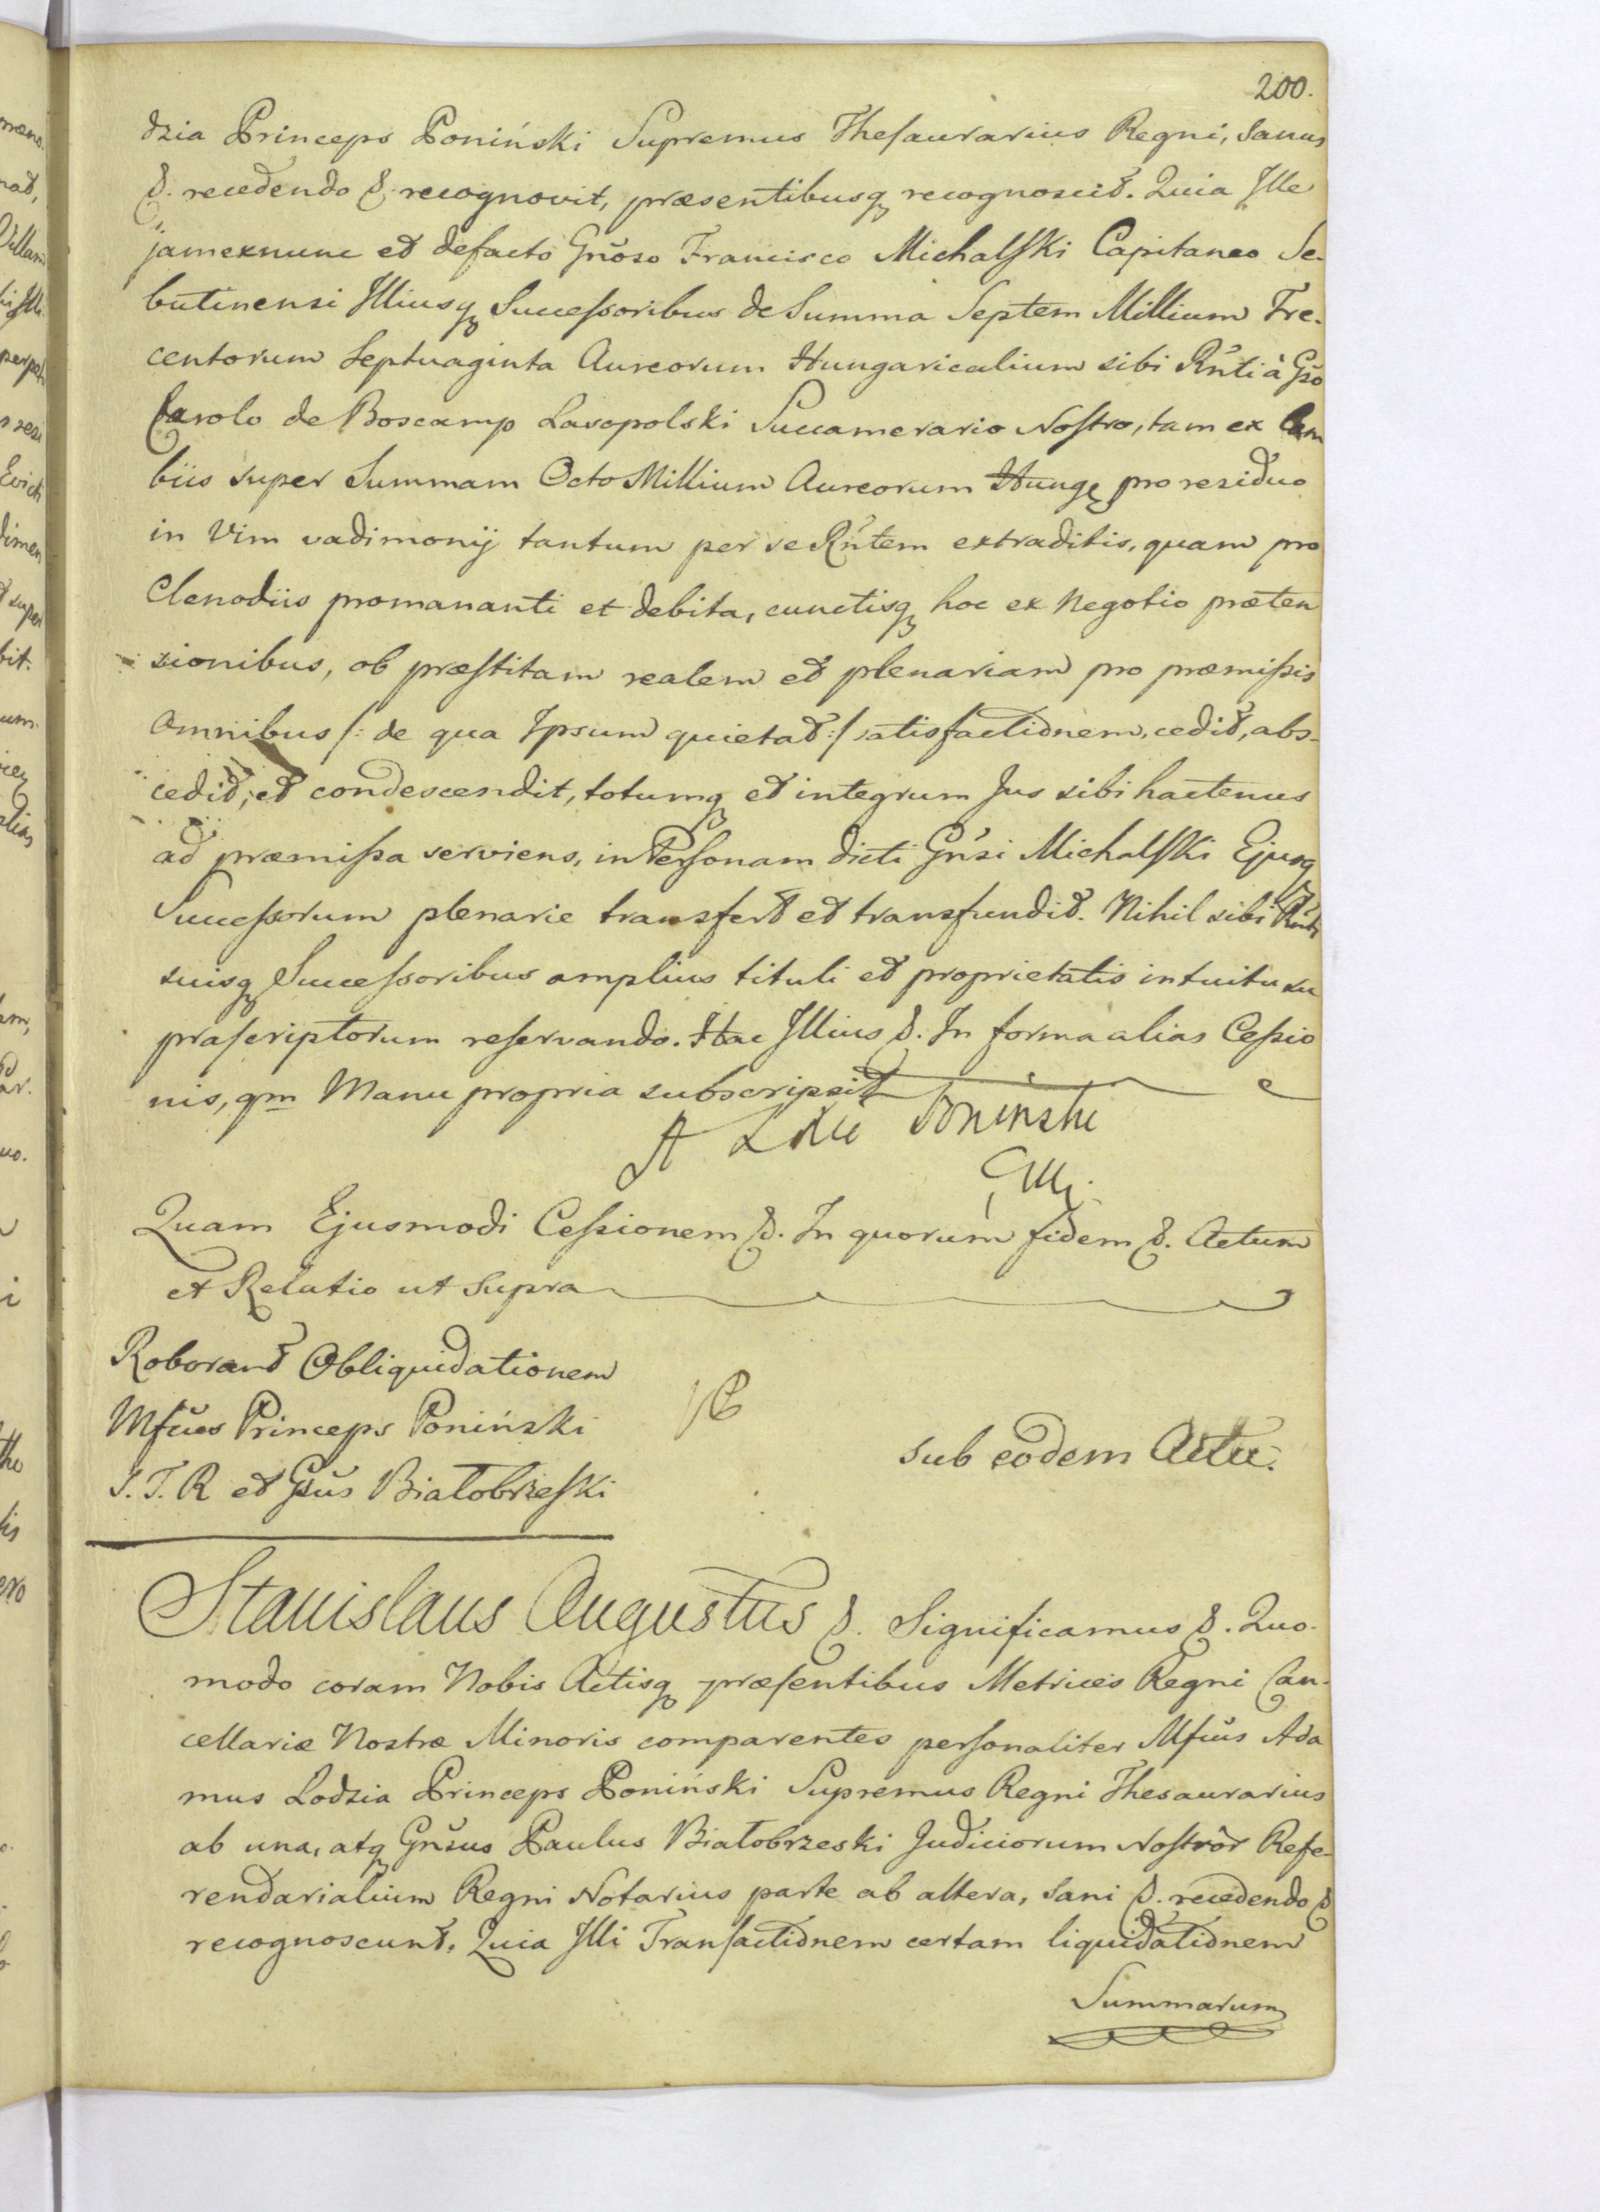 200.
dzia Princeps Poniński Supremus Thesaurarius Regni, sanus
&. recedendo & recognovit, præsentibusq recognoscit. Quia Ille
jamexnunc et defacto Gnõso Francisco Michalski Capitaneo Se-
butinensi Illiusq Successoribus de Summa Septem Millium Tre-
centorum Septuaginta Aureorum Hungaricalium sibi Rñti à Gso
Carolo de Boscamp Lasopolski Succamerario Nostro, tam ex Cam
biis super Summam Octo Millium Aureorum Hung pro residuo
in Vim vadimonij tantum per se Rñtem extraditis, quam pro
Clenodiis promananti et debita, cunctisq hoc ex Negotio præten
sionibus, ob præstitam realem et plenariam pro præmissis
Omnibus /: de qua Ipsum quietat :/ satisfactionem, cedit, abs-
cedit, et condescendit, totumq et integrum Jus sibi hactenus
ad præmissa serviens, in Personam dicti Gñsi Michalski Ejusq
Successorum plenarie transfert et transfundit. Nihil sibi Rñti
suisq Successoribus amplius tituli et proprietatis intuitu su
prascriptorum reservando. Hac Illius &. In forma alias Cessio
nis, qm Manu propria subscripsit
A Poninski
Quam Ejusmodi Cessionem &. In quorum fidem &. Actum
et Relatio ut Supra
Roborant Obliquidationem
Mfcus Princeps Poniński
S. T. R et Gsus Białobrzeski
sub eodem Actu.
Stanislaus Augustus &. Significamus &. Quo-
modo coram Nobis Actisq præsentibus Metrices Regni Can-
cellariæ Nostræ Minoris comparentes personaliter Mfcus Ada
mus Lodzia Princeps Poniński Supremus Regni Thesaurarius
ab una, atq Gnsus Paulus Białobrzeski Judiciorum Nostrôr Refe-
rendarialium Regni Notarius parte ab altera, sani &. recedendo &
recognoscunt. Quia Illi Transactionem certam liquidationem
Summarum